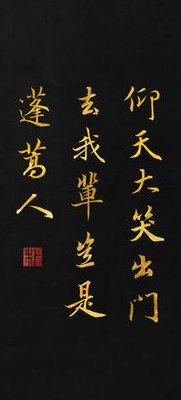 仰天大笑出门
去我輩岂是
蓬蒿人